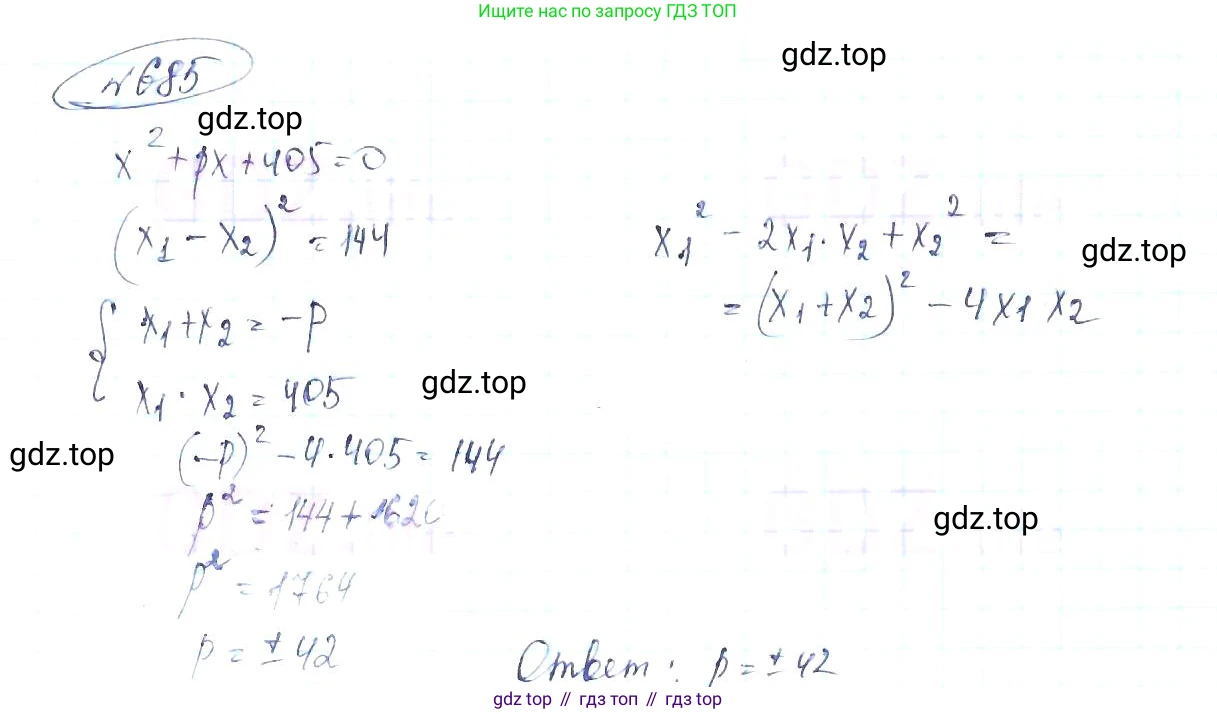 Ищите нас по запросу ГДЗ ТОП
gdz.top
№685
gdz.top
x² + px + 405 = 0
(x₁ - x₂)² = 144
x₁² - 2x₁·x₂ + x₂² =
gdz.top
= (x₁ + x₂)² - 4x₁x₂
{ x₁ + x₂ = -p
x₁ · x₂ = 405
gdz.top
gdz.top
(-p)² - 4·405 = 144
p² = 144 + 1620
gdz.top
p² = 1764
p = ± 42
Ответ: p = ± 42
gdz.top // гдз топ // гдз.top